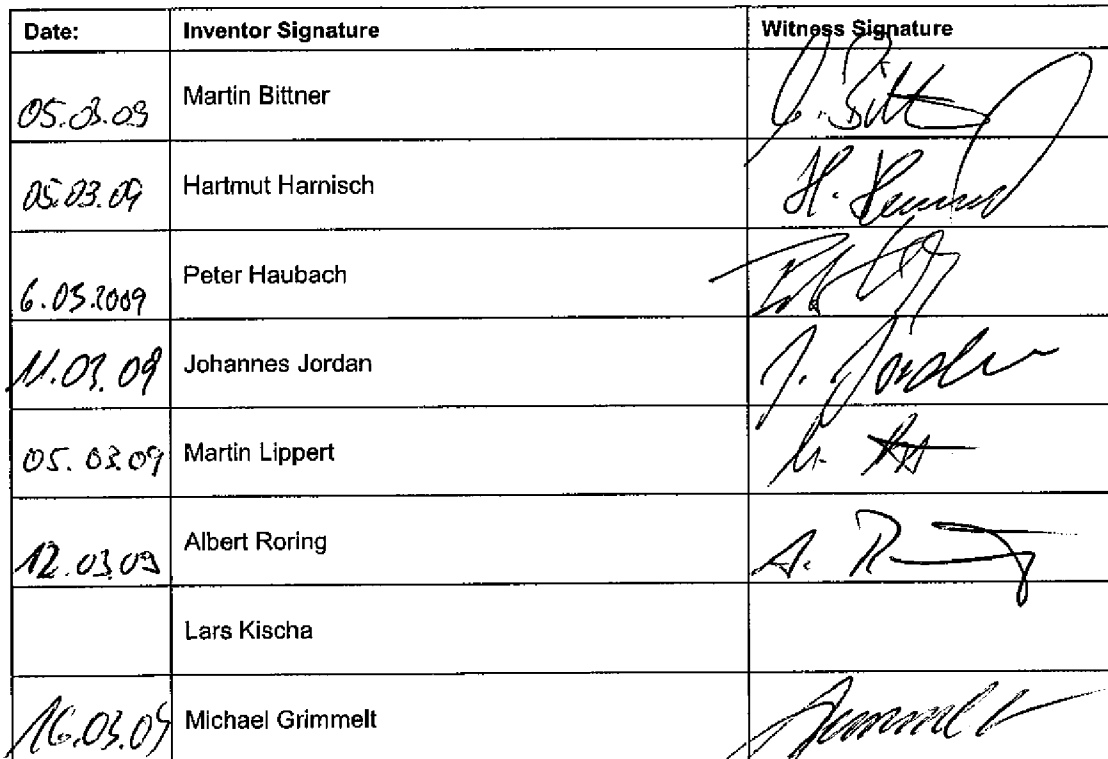 Date: Inventor Signature Witness Signature
05.03.09 Martin Bittner
05.03.09 Hartmut Harnisch H.
6.03.2009 Peter Haubach
11.03.09 Johannes Jordan J. Jordan
05.03.09 Martin Lippert
12.03.09 Albert Roring A.
Lars Kischa
16.03.09 Michael Grimmelt